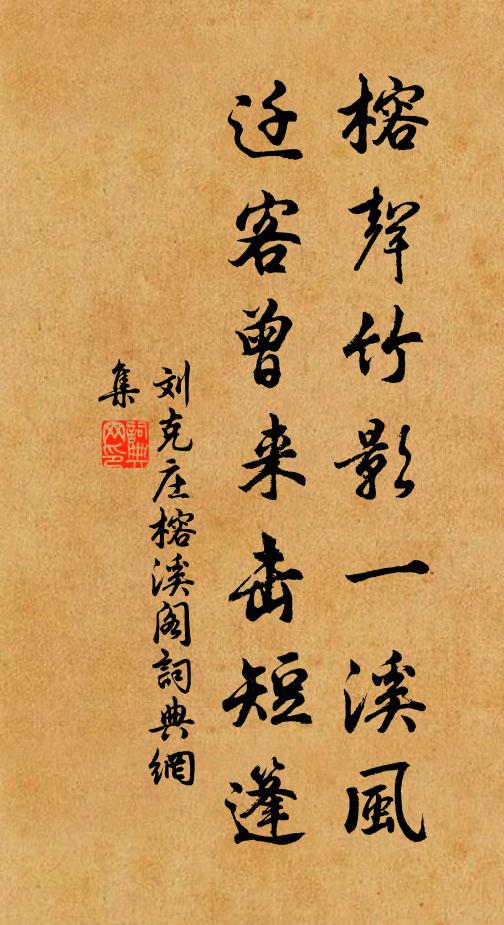 榕聲竹影一溪風
迁客曾来击短篷
刘克庄榕溪阁詞典網
集
詞典网印